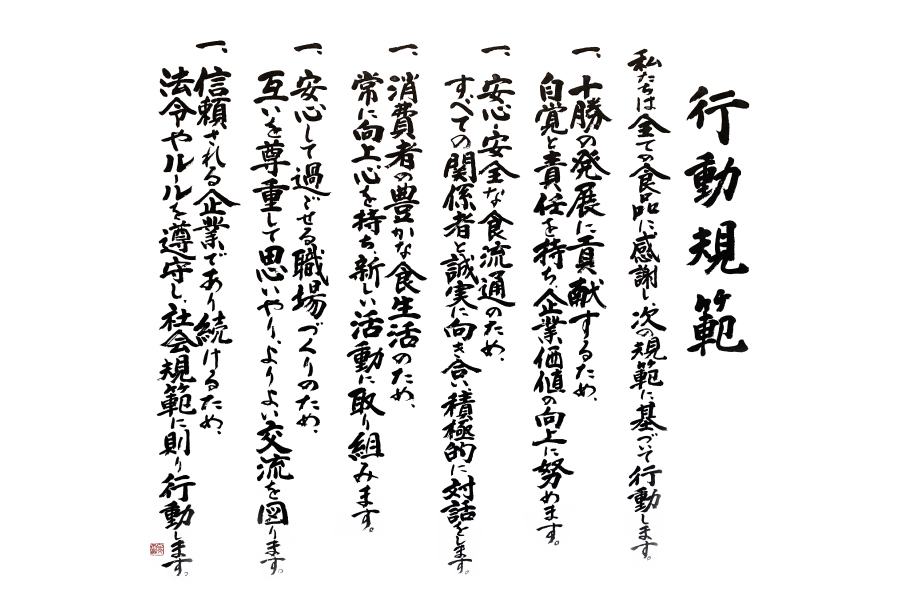 行動規範
私たちは全ての食品に感謝し、次の規範に基づいて行動します。
一、十勝の発展に貢献するため、
自覚と責任を持ち、企業価値の向上に努めます。
一、安心・安全な食流通のため、
すべての関係者と誠実に向き合い、積極的に対話をします。
一、消費者の豊かな食生活のため、
常に向上心を持ち、新しい活動に取り組みます。
一、安心して過ごせる職場づくりのため、
互いを尊重して思いやり、よりよい交流を図ります。
一、信頼される企業であり続けるため、
法令やルールを遵守し、社会規範に則り行動します。